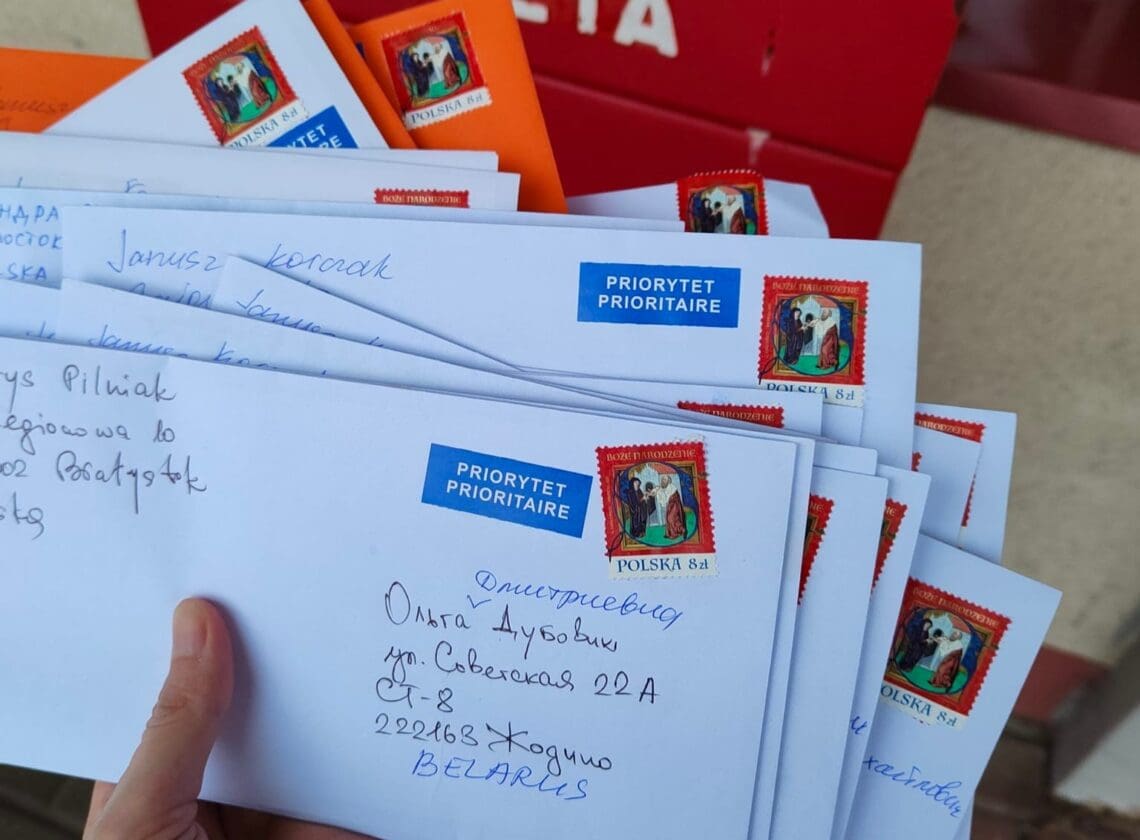 ETA
BOŻE NARODZENIE
POLSKA 8 zł
PRIORYTET
BOŻE NARODZENIE
POLSKA 8 zł
BOŻE NARODZENIE
НДРА
ОСТОК
LSKA
Janusz Korczak
PRIORYTET
PRIORITAIRE
BOŻE NARODZENIE
POLSKA 8 zł
Janusz
Janusz
BOŻE NARODZENIE
BOŻE NARODZENIE
rys Pilniak
egionowa 10
002 Białystok
PRIORYTET
PRIORITAIRE
BOŻE NARODZENIE
POLSKA 8 zł
Дмитриевна
Ольга Дубовик
ул. Советская 22А
СТ-8
222163 Жодино
BELARUS
BOŻE NARODZENIE
POLSKA 8 zł